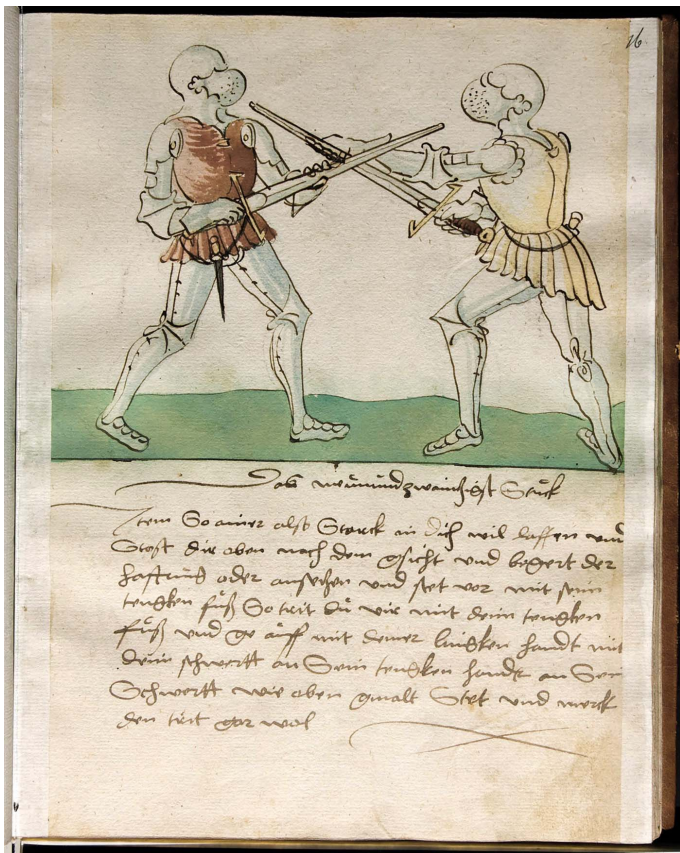 16
Das neunundzwaintzigist Stuck
Item So ainer also Starck in dich wil lassen und
Stost dir oben nach dem gsicht und begert der
fassung oder ansetzen und stet vor mit sein
tengken fuß So trit du vir mit deim tengken
fuß und ge auff mit deiner lingken handt mit
deim schwertt an Sein tengken handt an Sein
Schwertt wie oben gmalt Stet und merck
den trit gar wol